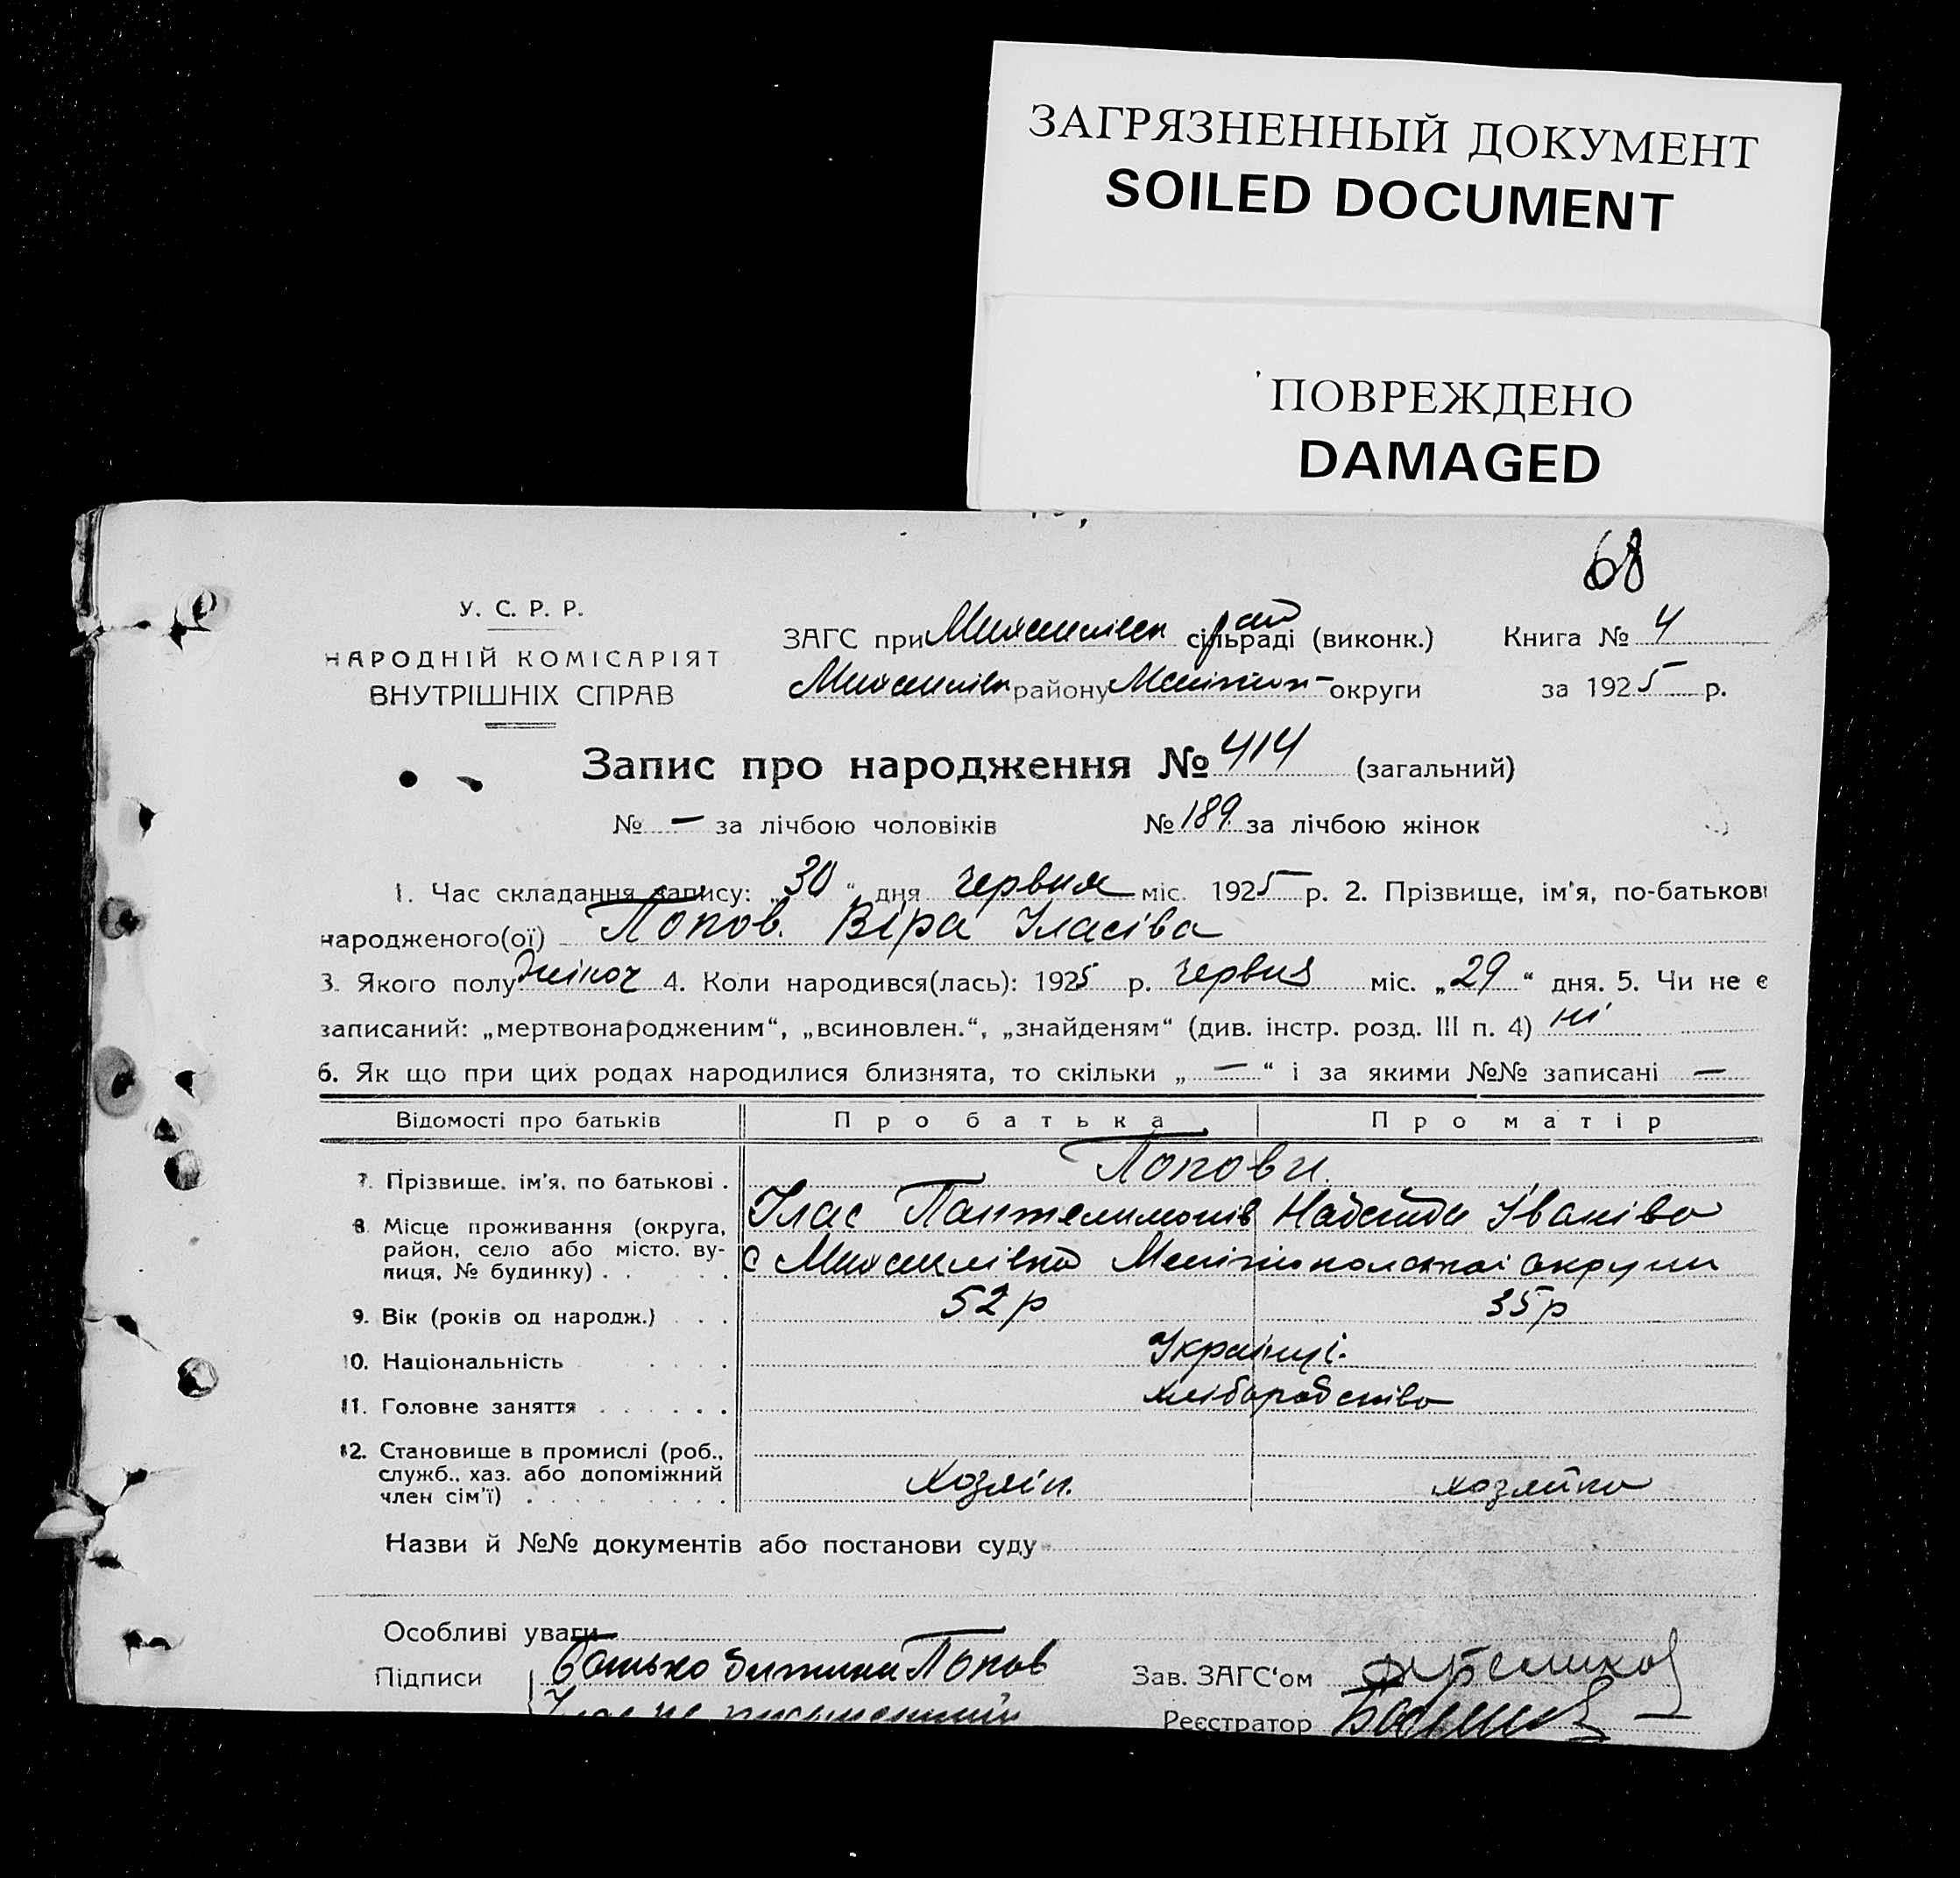 ЗАГРЯЗНЕННЫЙ ДОКУМЕНТ
SOILED DOCUMENT
ПОВРЕЖДЕНО
DAMAGED
68
У. С. Р. Р.
НАРОДНІЙ КОМІСАРІЯТ
ВНУТРІШНІХ СПРАВ
ЗАГС при Михайлівск рай сільраді (виконк.) Книга № 4
Михайлівск району Мелітоп округи за 1925 р.
Запис про народження № 414 (загальний)
№ — за лічбою чоловіків № 189 за лічбою жінок
1. Час складання запису: „30“ дня червня міс. 1925 р. 2. Прізвище, ім'я, по-батькові
народженого(ої) Попов. Віра Уласіва
3. Якого полу жіноч 4. Коли народився(лась): 1925 р. червня міс. „29“ дня. 5. Чи не є
записаний: „мертвонародженим“, „всиновлен.“, „знайденям“ (див. інстр. розд. III п. 4) ні
6. Як що при цих родах народилися близнята, то скільки „—“ і за якими №№ записані —
Відомості про батьків Про батька Про матір
7. Прізвище, ім'я, по батькові . Попови.
Улас Пантелимонів Надежда Іванівa
8. Місце проживання (округа,
район, село або місто, ву-
лиця, № будинку) . . . с Михайлівка Мелітопольської округи
9. Вік (років од народж.) . . . 52 р 35 р
10. Національність . . . . Українці.
11. Головне заняття . . . . . . хліборобство
12. Становище в промислі (роб.,
служб., хаз. або допоміжний
член сім'ї) . . . . . . . . хозяїн. хозяйка
Назви й №№ документів або постанови суду
Особливі уваги
Підписи Батько дитини Попов Зав. ЗАГС'ом
Улас не письменний Реєстратор